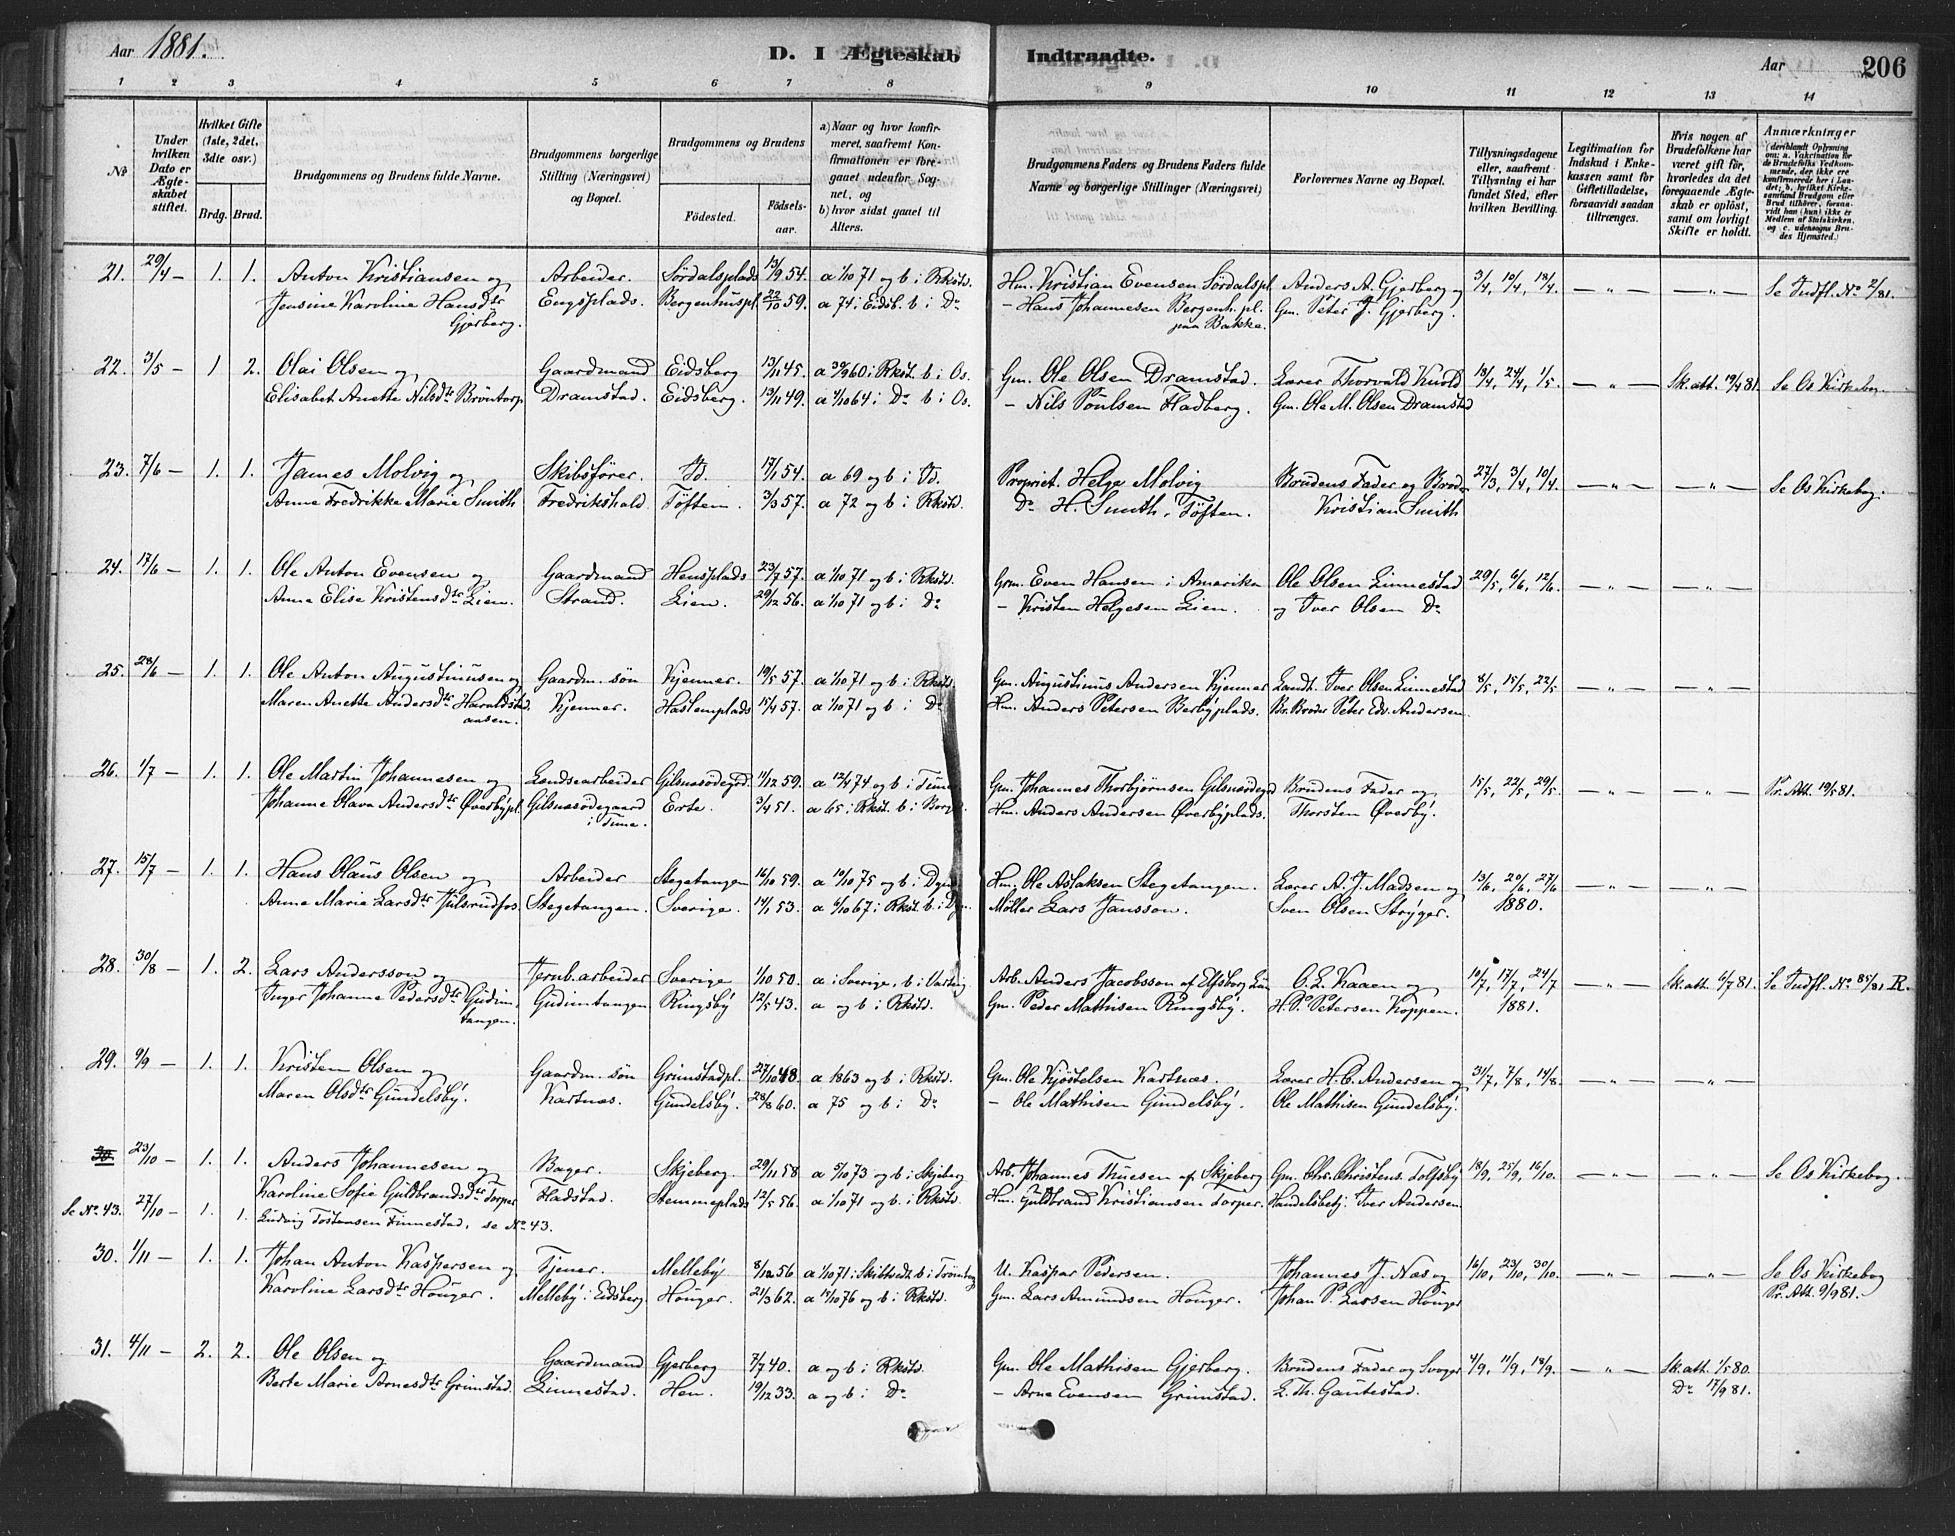 Aar 1881.
D. I Ægteskab Indtraadte.
Aar 206
1 2 3 4 5 6 7 8 9 10 11 12 13 14
No
Under hvilken Dato er Ægteskabet stiftet.
Hvilket Gifte (1ste, 2det, 3die osv.)
Brdg. Brud.
Brudgommens og Brudens fulde Navne.
Brudgommens borgerlige Stilling (Næringsvei) og Bopæl.
Brudgommens og Brudens
Födested. Födselsaar.
a) Naar og hvor konfirmeret, saafremt Konfirmationen er foregaaet udenfor Sognet, og
b) hvor sidst gaaet til Alters.
Brudgommens Faders og Brudens Faders fulde Navne og borgerlige Stillinger (Næringsvei)
Forlovernes Navne og Bopæl.
Tillysningsdagene eller, saafremt Tillysning ei har fundet Sted, efter hvilken Bevilling.
Legitimation for Indskud i Enkekassen samt for Giftetilladelse, forsaavidt saadan tiltrænges.
Hvis nogen af Brudefolkene har været gift før, hvorledes da det foregaaende Ægteskab er oplöst, samt om lovligt Skifte er holdt.
Anmærkninger (deriblandt Oplysning om: a. Vakcination for de Brudefolks Vedkommende, der ikke ere konfirmerede her i Landet; b. hvilket Kirkesamfund Brudgom eller Brud tilhører, forsaavidt han (hun) ikke er Medlem af Statskirken, og c. udensogns Brudes Hjemsted.)
21. 29/4 — 1. 1. Anton Kristiansen og Arbeider. Sørdalsplads 13/9 54. a 1/10 71 og b i Rkstd. Hm. Kristian Evensen Sørdalspl. Anders A. Gjerberg og 3/4, 10/4, 18/4. — „ — — „ — Se Indfl. No 2/81.
Jensine Karoline Hansdtr Engsplads. Bergenhuspl. 22/10 59. a 74 i Eidsb. b i Do — Hans Johannesen Bergenh. pl. Gm. Peter J. Gjerberg.
Gjerberg. paa Bakke.
22. 3/5 — 1 2. Olai Olsen og Gaardmand Eidsberg 13/11 45. a 30/9 60 i Rkst. b i Os. Gm. Ole Olsen Dramstad. Lærer Thorvald Knold 18/4, 24/4, 1/5. — „ — Sk. att. 19/4 81. Se Os Kirkebog.
Elisabet Anette Nilsdtr Bröntorp Dramstad. Eidsberg. 13/11 49. a 1/10 64 i Do b i Os. — Nils Poulsen Hadberg. Gm. Ole M. Olsen Dramstad
23. 7/6 — 1. 1. James Molvig og Skibsfører. Id. 17/1 54. a 69 og b i Id. Propriet. Helge Molvig Brudens Fader og Broder 27/3, 3/4, 10/4. — „ — — „ — Se Os Kirkebog.
Anne Fredrikke Marie Smith Fredrikshald Töften. 3/3 57. a 72 og b i Rkstd. Do H. Smith, Töften. Kristian Smith
24. 17/6 — 1. 1. Ole Anton Evensen og Gaardmand Hensplads 23/7 57. a 1/10 71 og b i Rkstd. Gm. Even Hansen i Amerika Ole Olsen Linnestad 29/5, 6/6, 12/6. — „ — — „ —
Anne Elise Kristensdtr Lien. Strand. Lien. 29/12 56. a 1/10 71 og b i Do — Kristen Helgesen Lien. og Iver Olsen Do
25. 28/6 — 1. 1. Ole Anton Augustinusen og Gaardm. sön Kjenner. 19/5 57. a 1/10 71 og b i Rkstd. Gm. Augustinus Andersen Kjenner Landh. Iver Olsen Linnestad 8/5, 15/5, 22/5 — „ — — „ —
Maren Anette Andersdtr Haraldstad Kjenner. Haslemplads 15/4 57. a 1/10 71 og b i Do Hm. Anders Petersen Berbyplads. Br. Broder Peter Edv. Andersen.
aasen.
26. 1/7 — 1. 1. Ole Martin Johannesen og Lændsearbeider Gilsnæsödegrd. 11/12 59. a 12/4 74 og b i Tune Gm. Johannes Thorbjörnsen Gilsnæsödegrd Brudens Fader og 15/5, 22/5, 29/5. — „ — — „ — Pr. Att. 19/5 81.
Johanne Olava Andersdtr Øverbypl. Gilsnæsödegaard Erte. 3/4 51. a 65 i Rkst. b i Borge. Hm. Anders Andersen Øverbyplads. Thorsten Øverby.
i Tune.
27. 15/7 — 1. 1. Hans Olaus Olsen og Arbeider Stegetangen 16/10 59. a 10/10 75 og b i Dyne Hm. Ole Aslaksen Stegetangen. Lærer A. J. Madsen og 13/6, 20/6, 27/6 — „ — — „ —
Anne Marie Larsdtr Julsrudfos. Stegetangen. Sverige. 14/1 53. a 6/10 67 i Rkst. b i Dyn. Møller Lars Jansson. Sven Olsen Stryger. 1880.
28. 30/8 — 1. 2. Lars Andersson og Jernb. arbeider Sverige 1/10 50. a i Sverige, b i Varteig Arb. Anders Jacobsson af Elfsborg Län O. L. Kaaen og 10/7, 17/7, 24/7 — „ — Sk. att. 6/7 81. Se Indfl. No 85/81 R.
Inger Johanne Pedersdtr Gudim Gudimtangen Ringsby 12/5 43. a og b i Rkstd. Gm. Peder Mathisen Ringsby. H. P. Petersen Koppen. 1881.
tangen.
29. 9/9 — 1. 1. Kristen Olsen og Gaardm. sön Grimstadpl. 27/10 48. a 1863 og b i Rkstd. Gm. Ole Kjöstelsen Kartnæs. Lærer H. C. Andersen og 31/7, 7/8, 14/8. — „ — — „ —
Maren Olsdtr Gundelsby. Kartnæs. Gundelsby. 28/8 60. a 75 og b i Do — Ole Mathisen Gundelsby. Ole Mathisen Gundelsby.
30. 23/10 — 1. 1. Anders Johannesen og Bager. Skjeberg. 29/11 58 a 5/10 73 og b i Skjeberg Arb. Johannes Thuesen af Skjeberg Gm. Chr. Christens. Tolfsby 18/9, 25/9, 16/10. — „ — — „ — Se Os Kirkebog.
Karoline Sofie Guldbrandsdtr Torper Fladstad. Stemmeplads 12/5 56. a 1/10 71 og b i Rkstd. Hm. Guldbrand Kristiansen Torper. Handelsbetj. Iver Andersen
Se No. 43. 27/10 — 1. 1. Ludvig Tostensen Finnestad, se No. 43.
30. 1/11 — 1. 1. Johan Anton Kaspersen og Tjener. Melleby 8/12 56 a 1/10 71 i Skibtvedt b i Trömborg U. Kaspar Pedersen. Johannes J. Næs og 16/10, 23/10, 30/10. — „ — — „ — Se Os Kirkebog
Karoline Larsdtr Houger. Melleby i Eidsberg Houger. 21/3 62. a 14/10 76 og b i Rkstd. Gm. Lars Amundsen Houger. Johan P. Larsen Houger Pr. Att. 9/9 81.
31. 4/11 — 2. 2. Ole Olsen og Gaardmand Gjerberg 7/7 40. a og b i Rkstd. Gm. Ole Mathisen Gjerberg. Brudens Fader og Svoger 4/9, 11/9, 18/9. — „ — Sk. att. 1/5 80
Berte Marie Arnesdtr Grimstad Linnestad. Hen. 19/12 33. a og b i Do — Arne Evensen Grimstad. E. Th. Gautestad. Do 17/9 81.